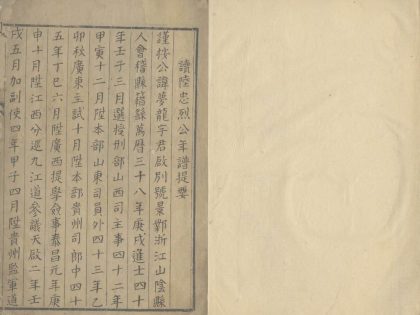 讀陸忠烈公年譜提要
謹按公諱夢龍字君啟別號景鄴浙江山陰縣
人會稽縣籍萬曆三十八年庚戌進士四十
年壬子三月選授刑部山西司主事四十二年
甲寅十二月陞本部山東司員外四十三年乙
卯秋廣東主試十月陞本部貴州司郎中四十
五年丁巳六月陞廣西提學僉事泰昌元年庚
申十月陞江西分巡九江道參議天啟二年壬
戌五月加副使四年甲子四月陞貴州監軍道